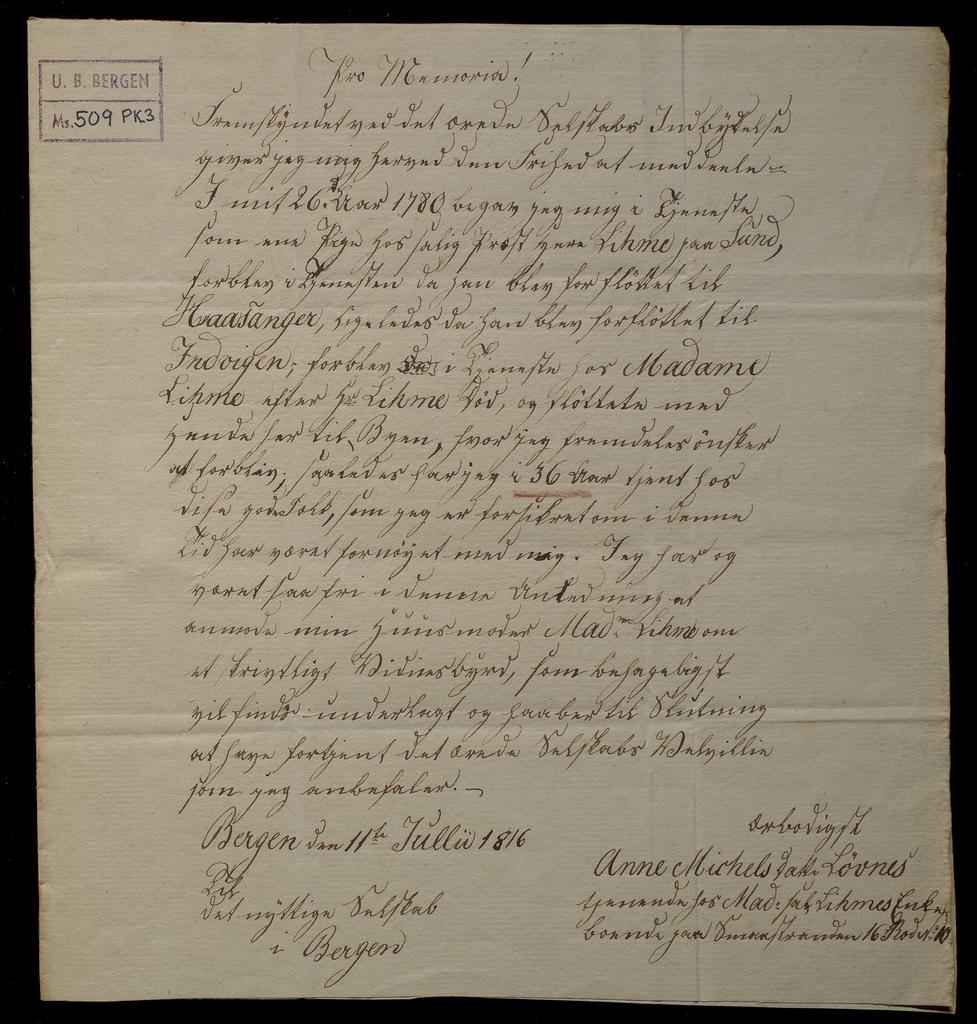 U. B. BERGEN
Ms. 509 PK.3
Pro Memoria!
Fremskyndet ved det ærede Selskabs Indbydelse
giver jeg mig herved den Frihed at meddeele =
I mit 26.d Aar 1780 begav jeg mig i Tjeneste
som ene Pige hos salig Præst Herr Lihme paa Sund,
forblev i Tjenesten da han blev forflöttet til
Haasanger, ligeledes da han blev forflöttet til
Indvigen; forblev i Tjeneste hos Madame
Lihme efter Hr Lihme Död, og flöttete med
hende her til Byen, hvor jeg fremdeles önsker
at forbliv; saaledes har jeg i 36 Aar tjent hos
disse gode Folk, som jeg er forsikret om i denne
Tid har været fornöyet med mig. Jeg har og
været saa fri i denne Anledning at
anmode min Huusmoder Mad.me Lihme om
et skrivtligt Vidnesbyrd, som behageligst
vil findes underlagt og haaber til Slutning
at have fortjent det ærede Selskabs Velvillie
som jeg anbefaler. —
Bergen den 11te Jullii 1816
ærbödigst
Anne Michels Datter Lövnes
tjenende hos Mad: sal. Lihmes Enke
boende paa Smaastranden 16 Rode No 10
Til
det nyttige Selskab
i Bergen